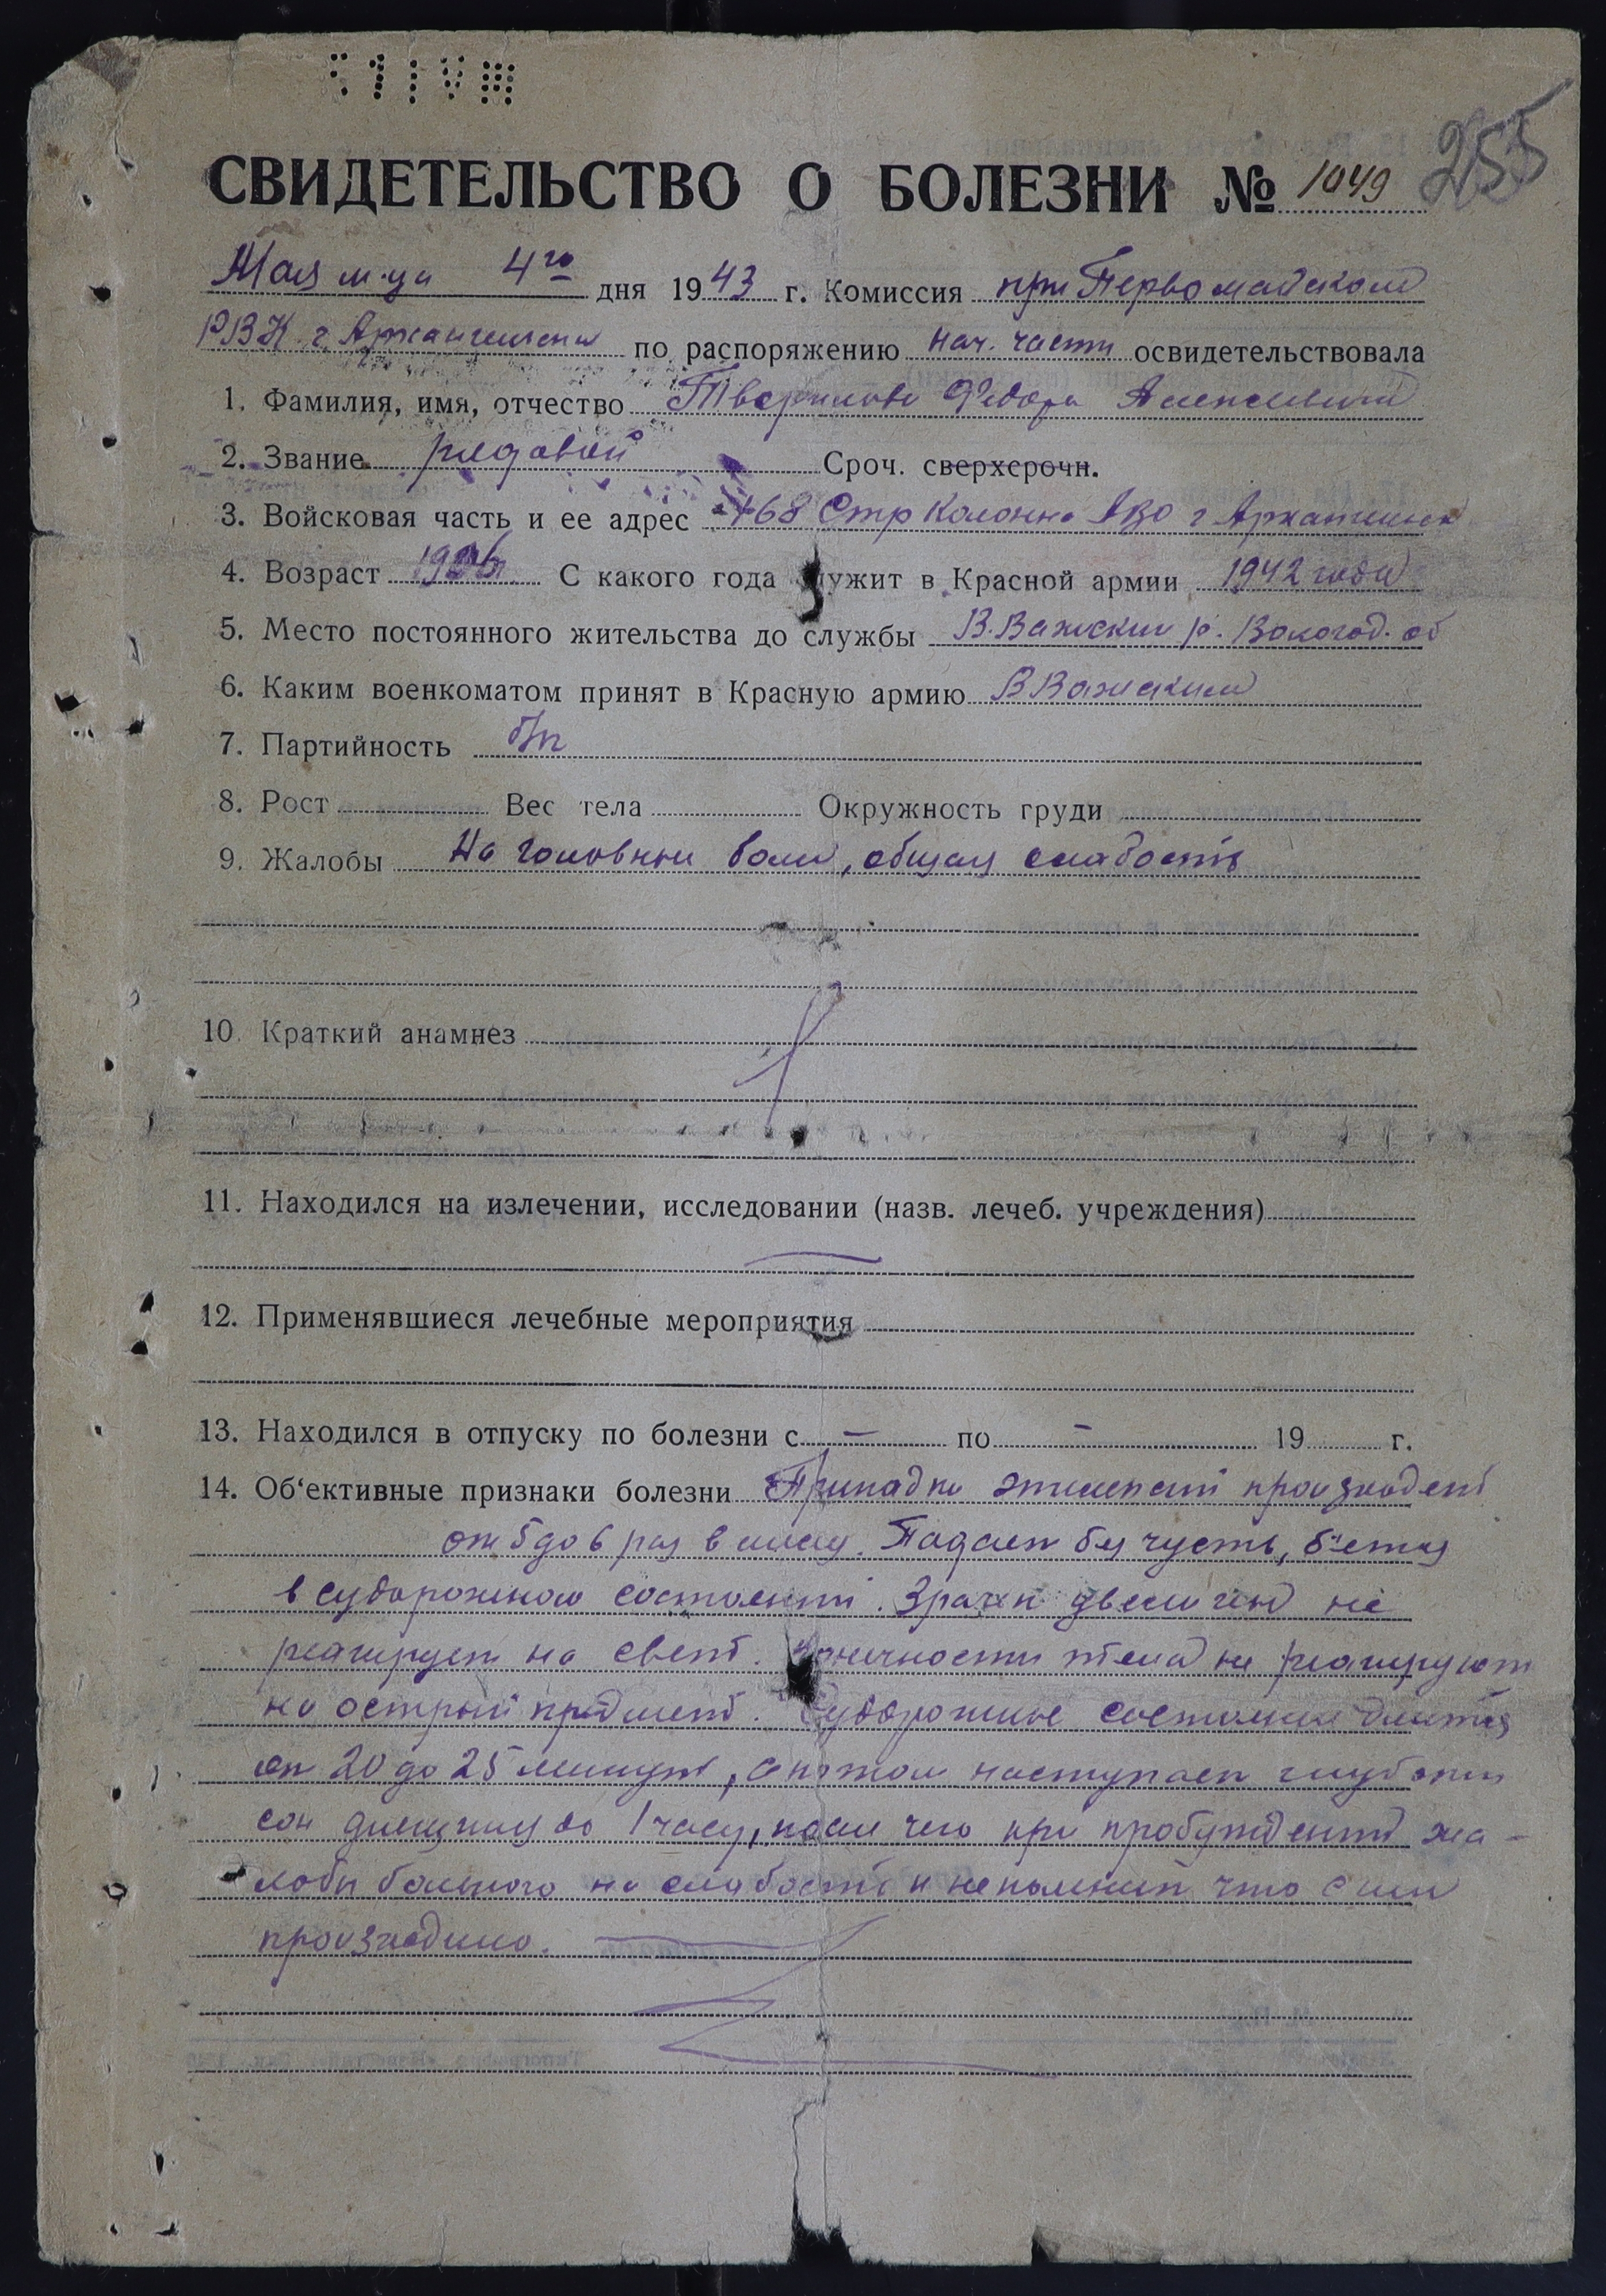 255
СВИДЕТЕЛЬСТВО О БОЛЕЗНИ № 1049
Мая м-ца 4го дня 1943 г. Комиссия при Первомайском
РВК г. Архангельска по распоряжению нач. части освидетельствовала
1. Фамилия, имя, отчество Федора Алексеевича
2. Звание рядовой Сроч. сверхсрочн.
3. Войсковая часть и ее адрес 468 Стр Колонна АВО г Архангельск
4. Возраст С какого года служит в Красной армии 1942 года
5. Место постоянного жительства до службы В.Важский р. Вологод. об
6. Каким военкоматом принят в Красную армию В Важским
7. Партийность б/п
8. Рост Вес тела Окружность груди
9. Жалобы На головные боли, общая слабость
10. Краткий анамнез
11. Находился на излечении, исследовании (назв. лечеб. учреждения)
12. Применявшиеся лечебные мероприятия
13. Находился в отпуску по болезни с — по — 19 г.
14. Об‘ективные признаки болезни Припадки эпилепсии происходят
от 5 до 6 раз в месяц. Падает без чуств, бьется
в судорожном состоянии. Зрачки не
реагирует на свет. Конечности тела не реагируют
на острый предмет. Судорожное состояние длится
от 20 до 25 минут, а потом наступает глубокий
сон до 1 часу, после чего при пробуждении жа-
лобы больного на слабость и не помнит что с ним
происходило.